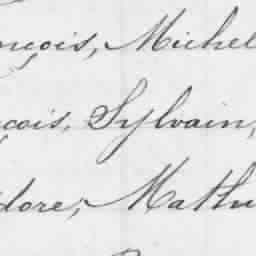 nçois, Michel
çois, Sylvain,
dore, Mathu